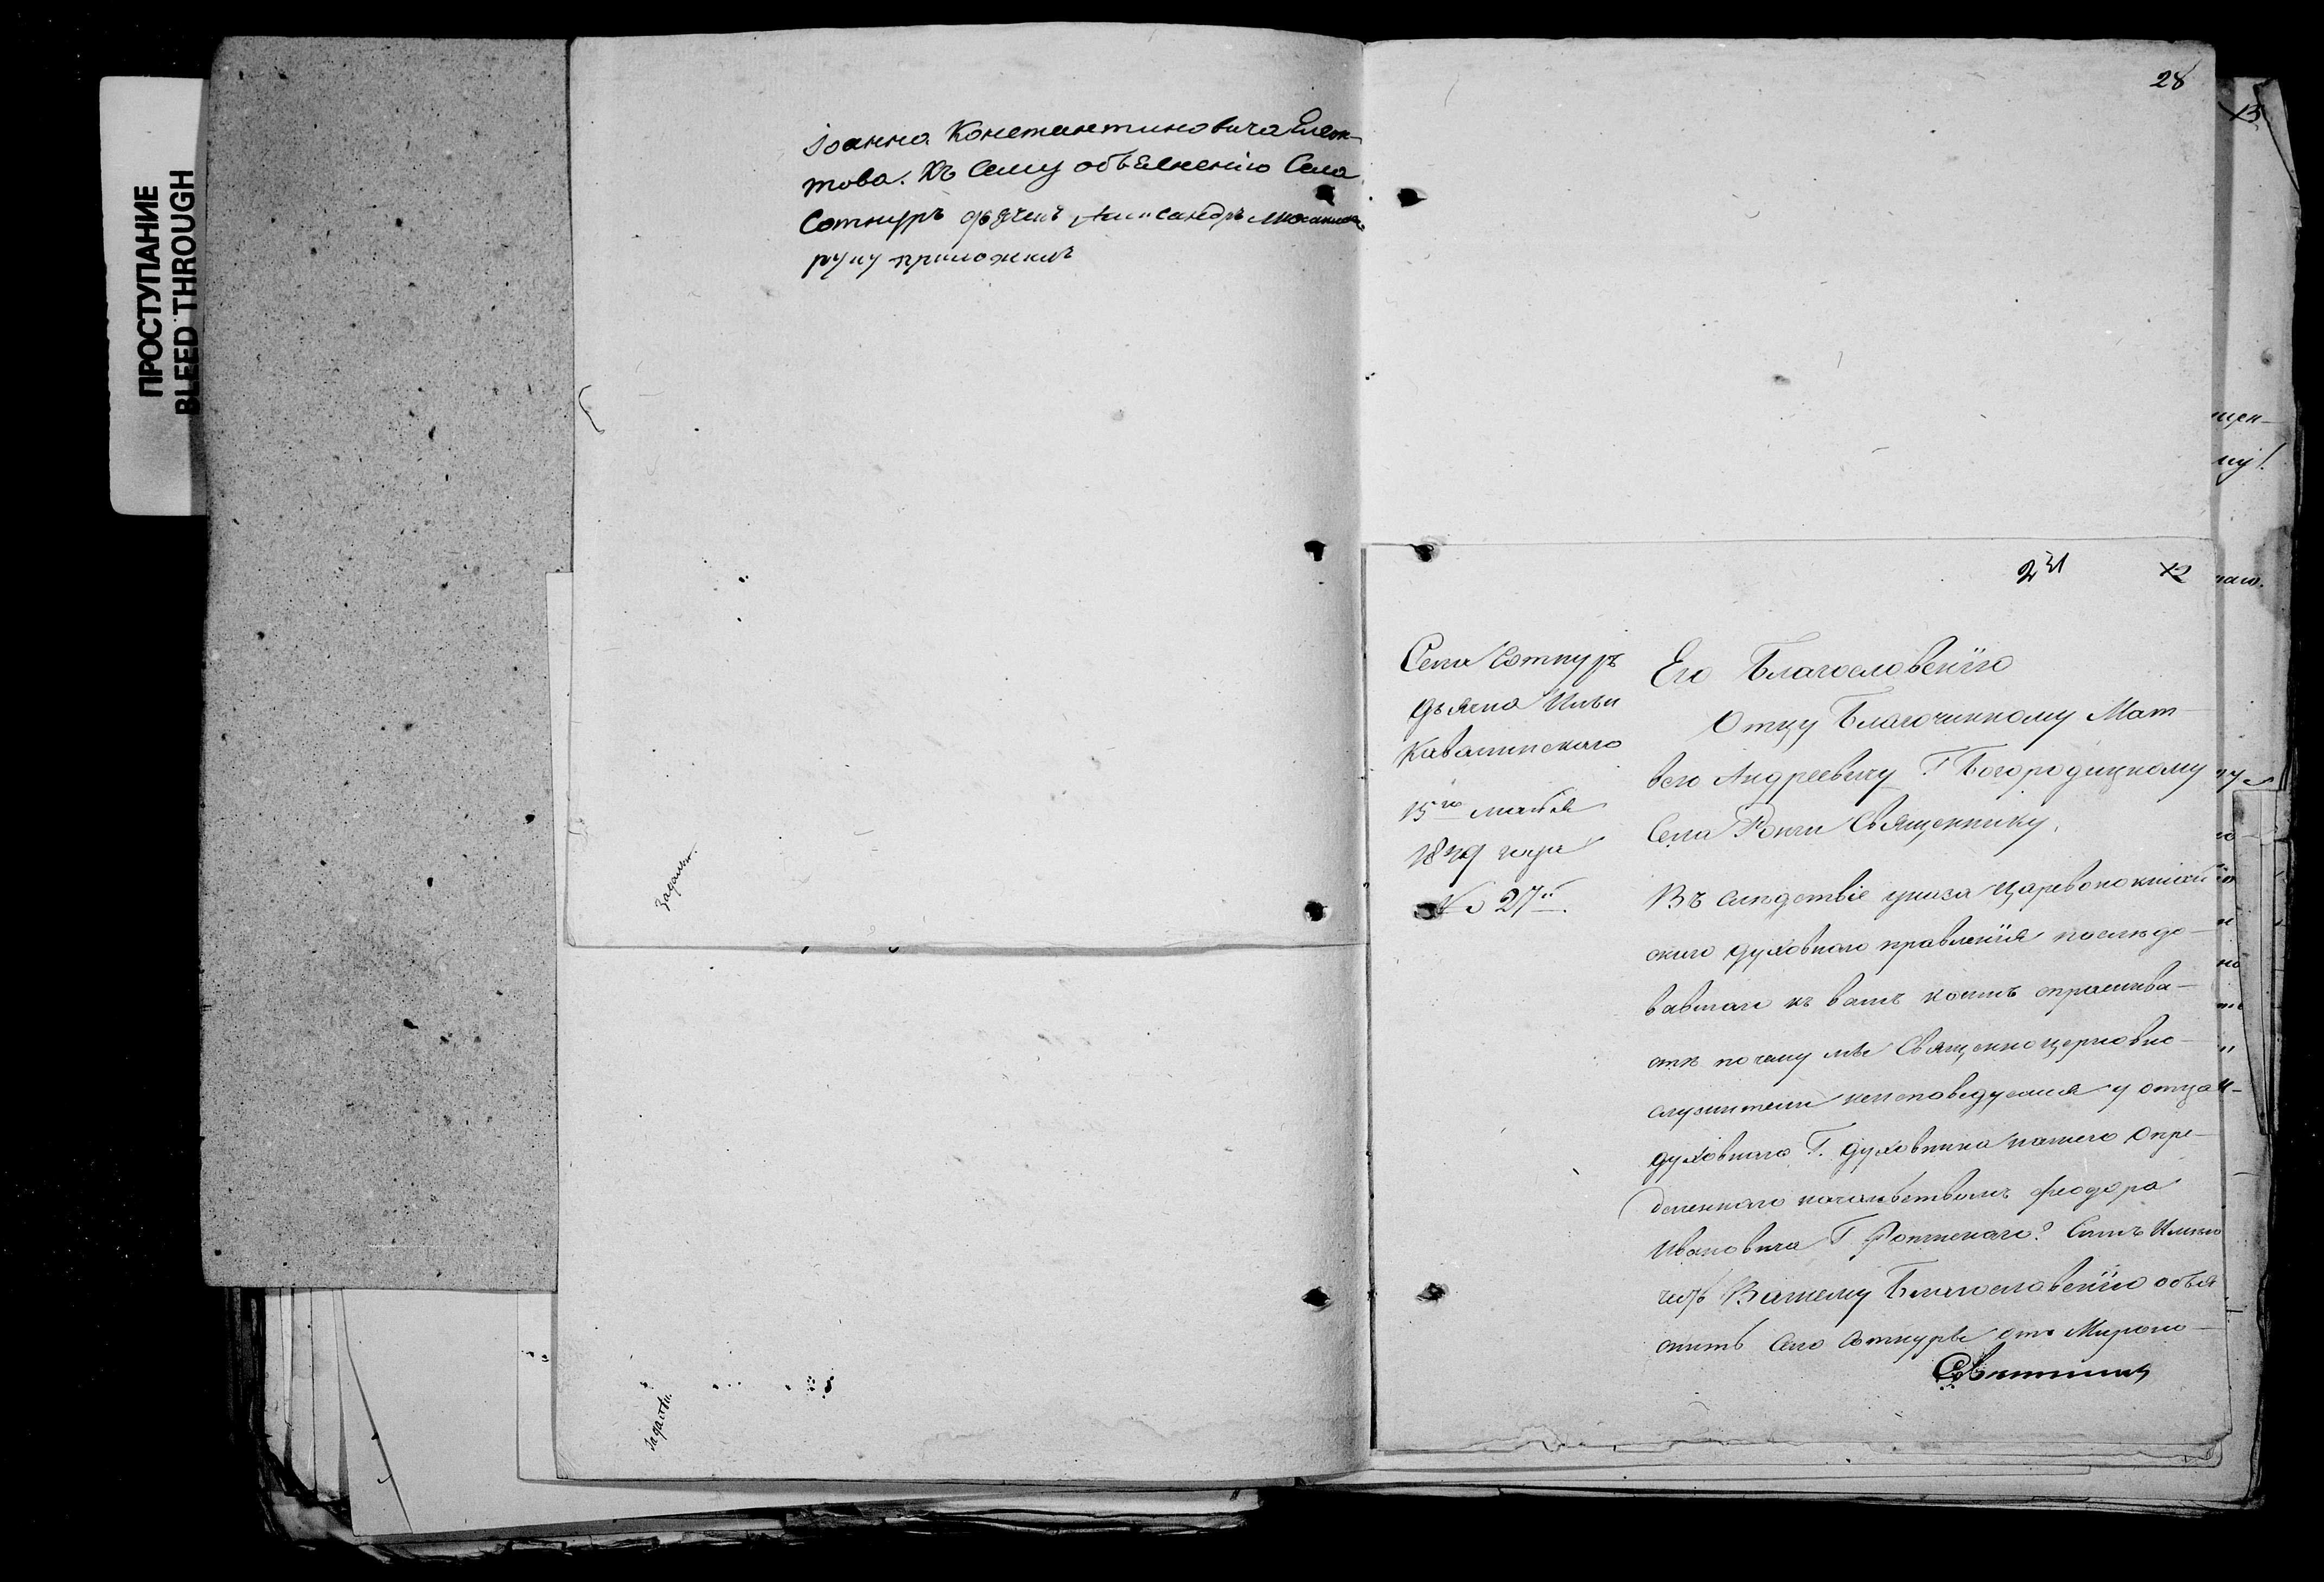 ПРОСТУПАНИЕ
BLEED THROUGH
Іоанна Константиновича
това. Къ Сему объясненію Села
Сотнуръ дьячекъ Александръ
руку приложилъ
28
13
231
12
Села Сотнуръ
дьячка Ильи
Кавалинскаго
15го маія
1849 года
№ 27й.
Его Благословенїю
Отцу Благочинному Мат-
вею Андреевичу Г Богородицкому
Села Ронги Священнику,
Въ следствіе указа Царевококшай
скаго духовнаго правленїя последо-
вавшаго къ вамъ коимъ спрашива-
етъ почему мы Священноцерковно-
служители неисповедуемся у отца
духовнаго Г. духовника нашего Опре-
деленнаго начальствомъ Феодора
Ивановича Г. Симъ Имею
честь Вашему Благословенїю объя
снить Село Сотнуры отъ